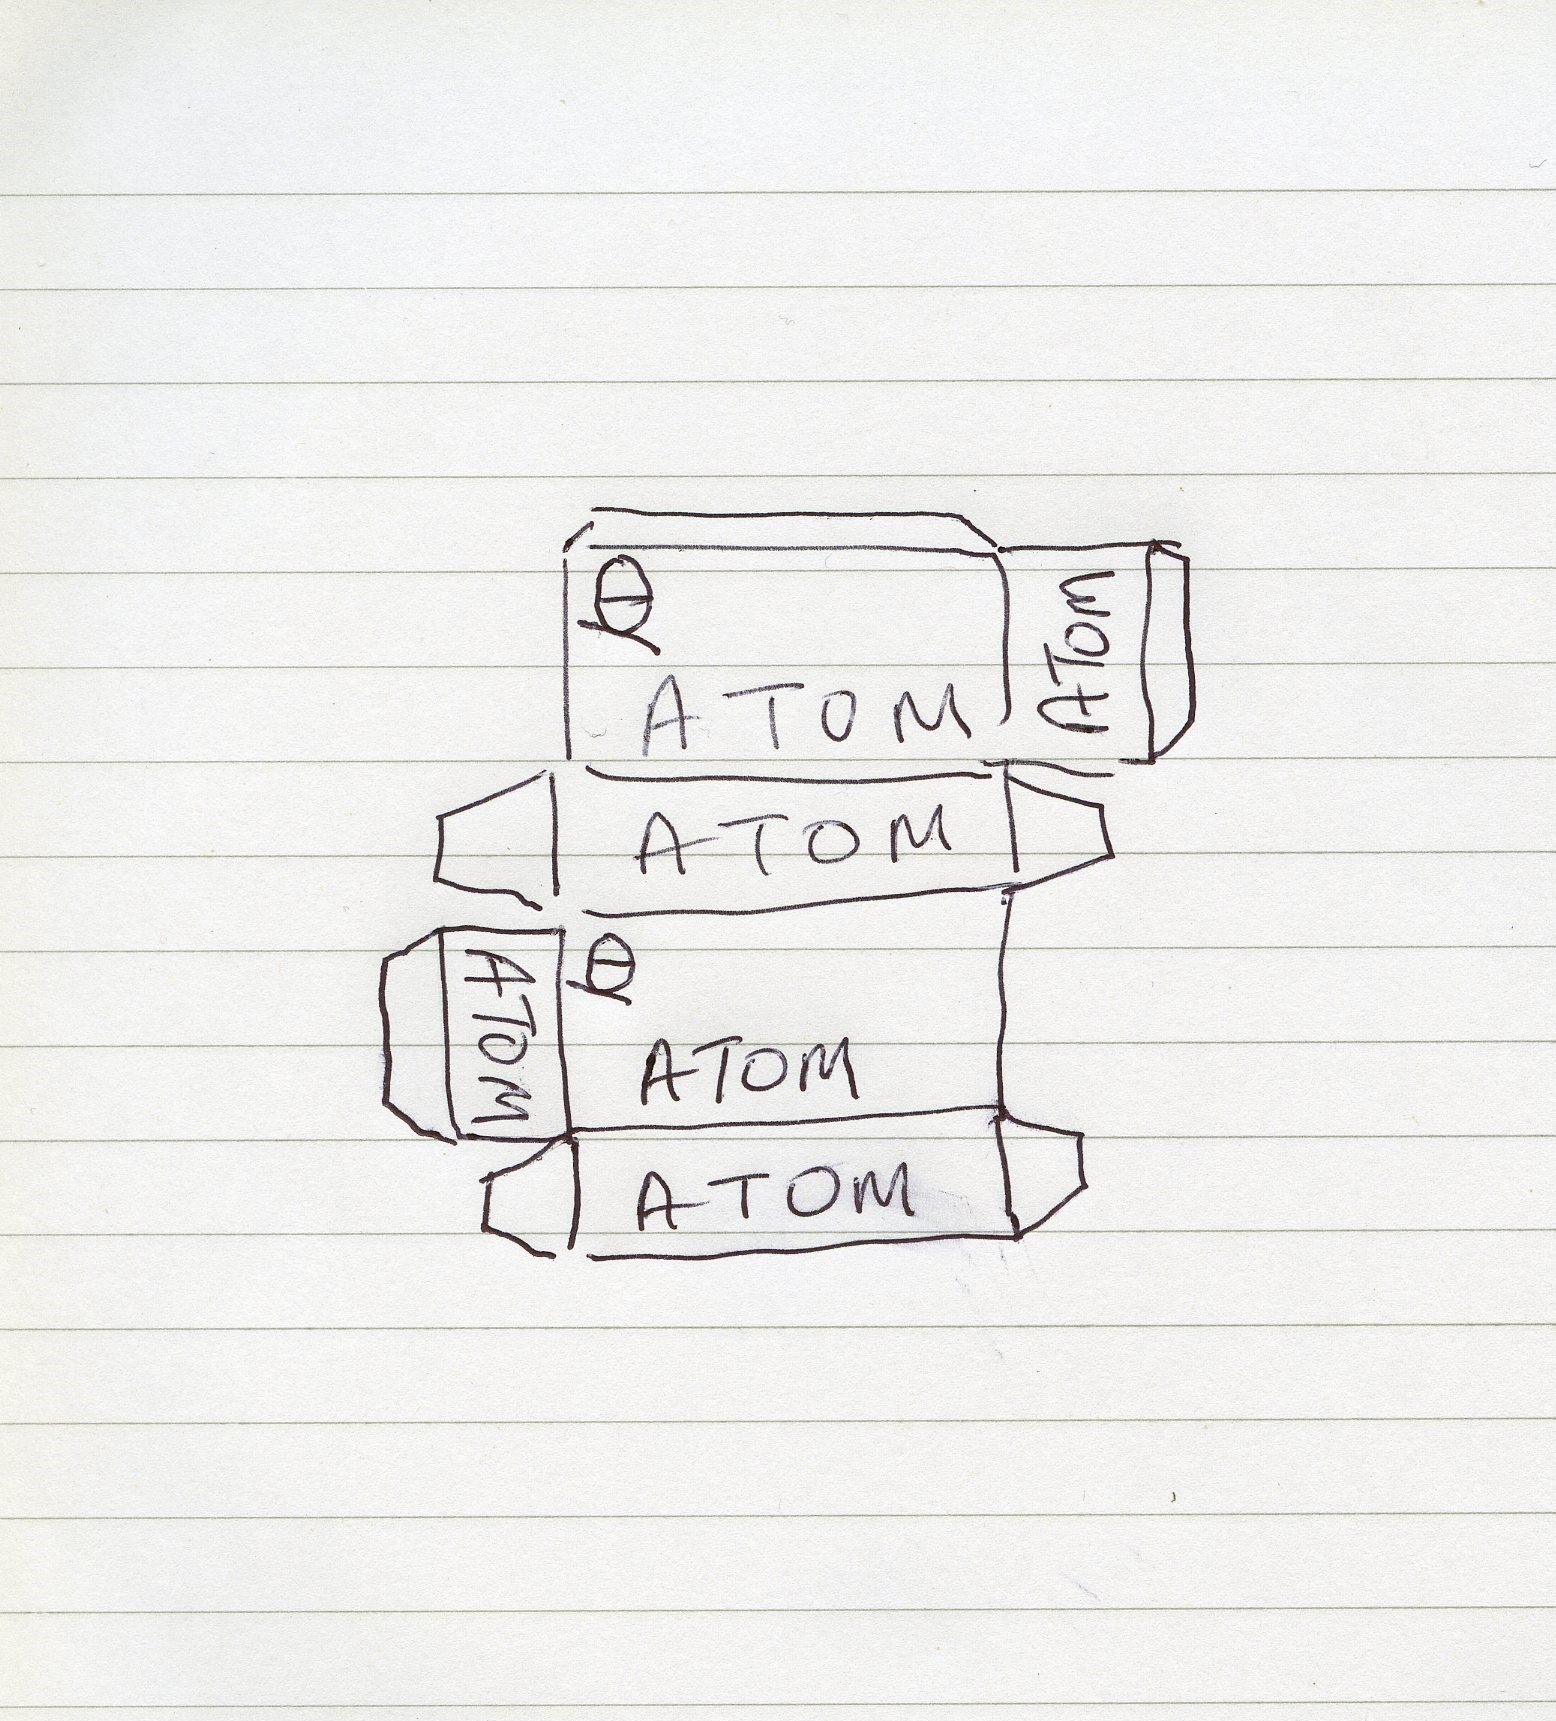 ATOM
ATOM
ATOM
ATOM
ATOM
ATOM